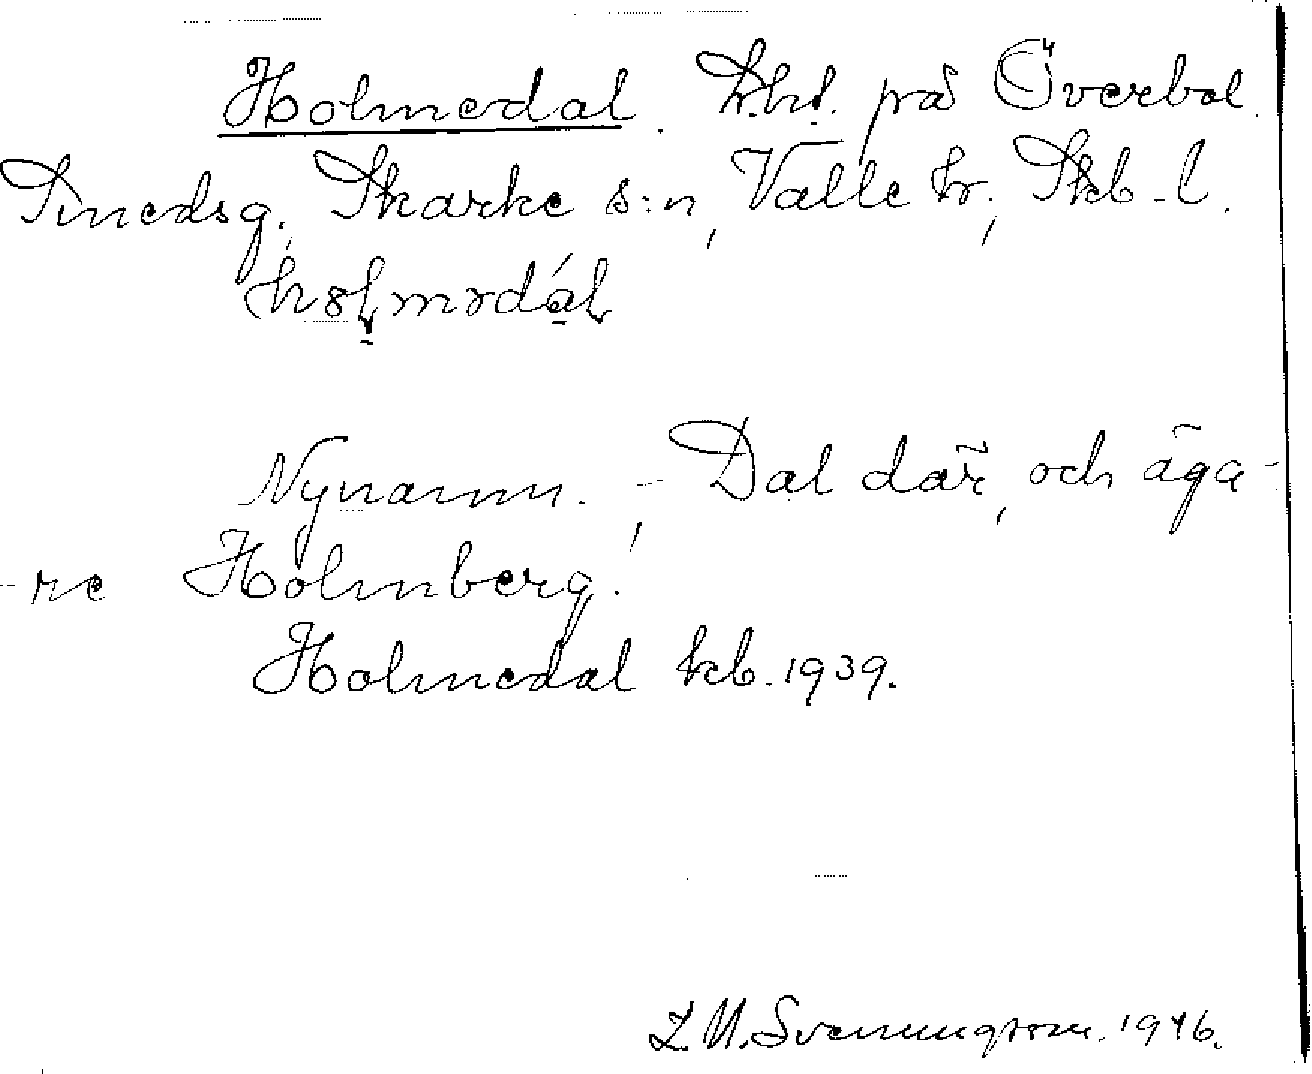 Holmedal. Lht. på Överbol
Smedsg., Skarke s:n, Valle hr., Skb-l.
hɷlmədáL
Nynamn. - Dal där, och äga-
-re Holmberg.
Holmedal kb. 1939.
L. M. Svenungsson. 1946.